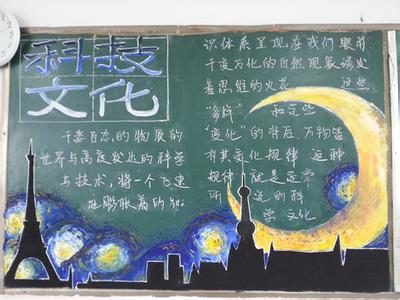 科技
文化
千变百态的物质的
世界与高度发达的科学
与技术,将一个飞速
地膨胀着的知
识体系呈现在我们眼前
千变万化的自然现象诱发
着思维的火花 这些
"多样" 和这些
"变化"的背后 万物皆
有其变化规律 这种
规律 就是正常
所 说的科
学 文化